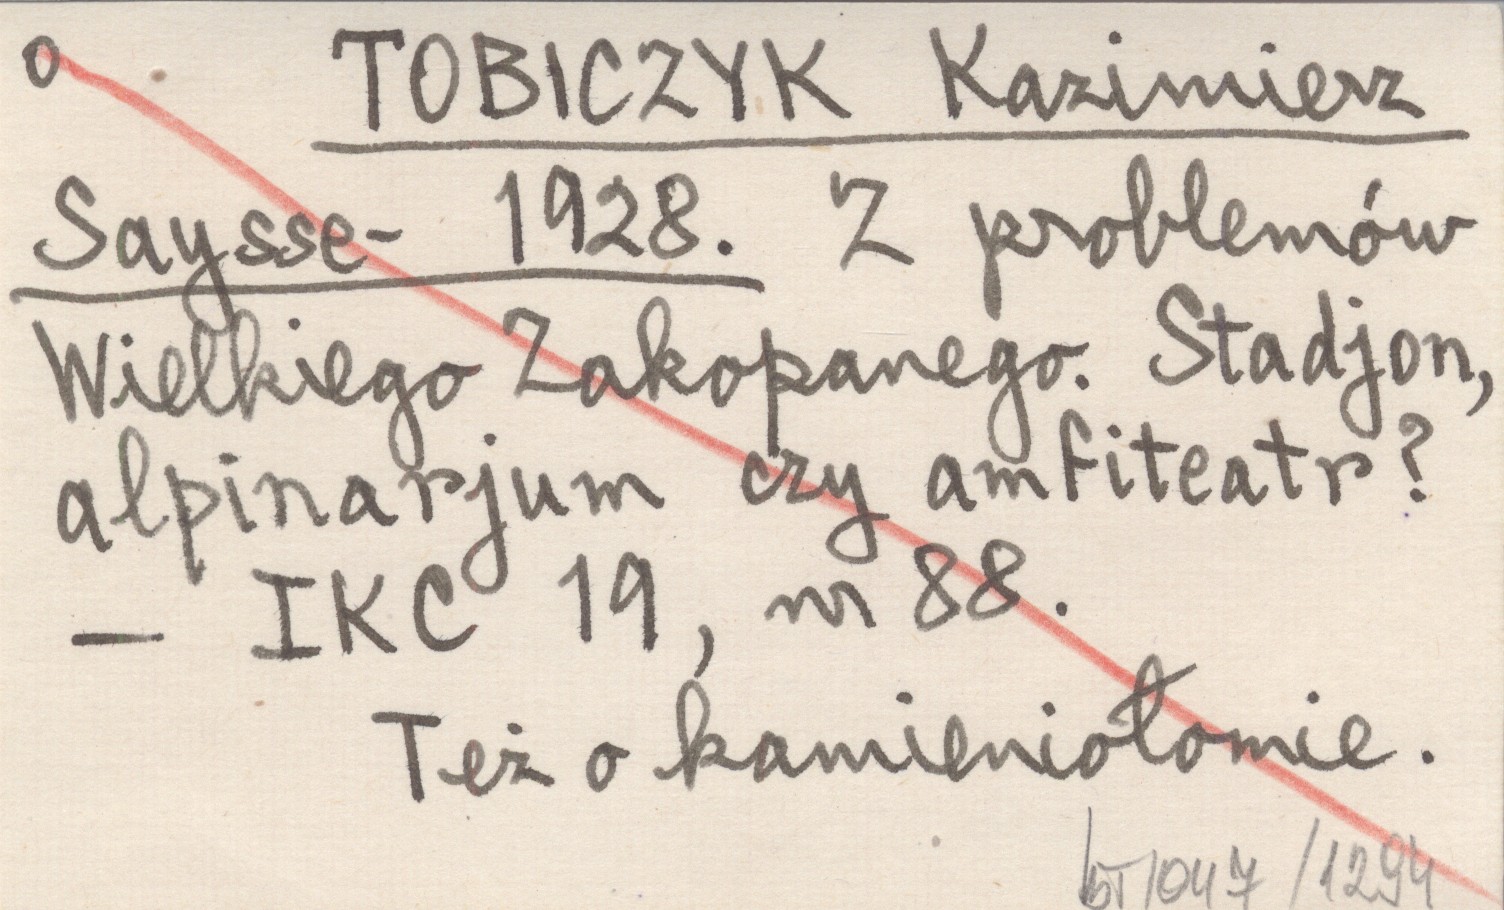 o TOBICZYK Kazimierz
Saysse- 1928. Z problemów
Wielkiego Zakopanego. Stadjon,
alpinarjum czy amfiteatr?
— IKC 19, nr 88.
Też o kamieniołomie.
/1294